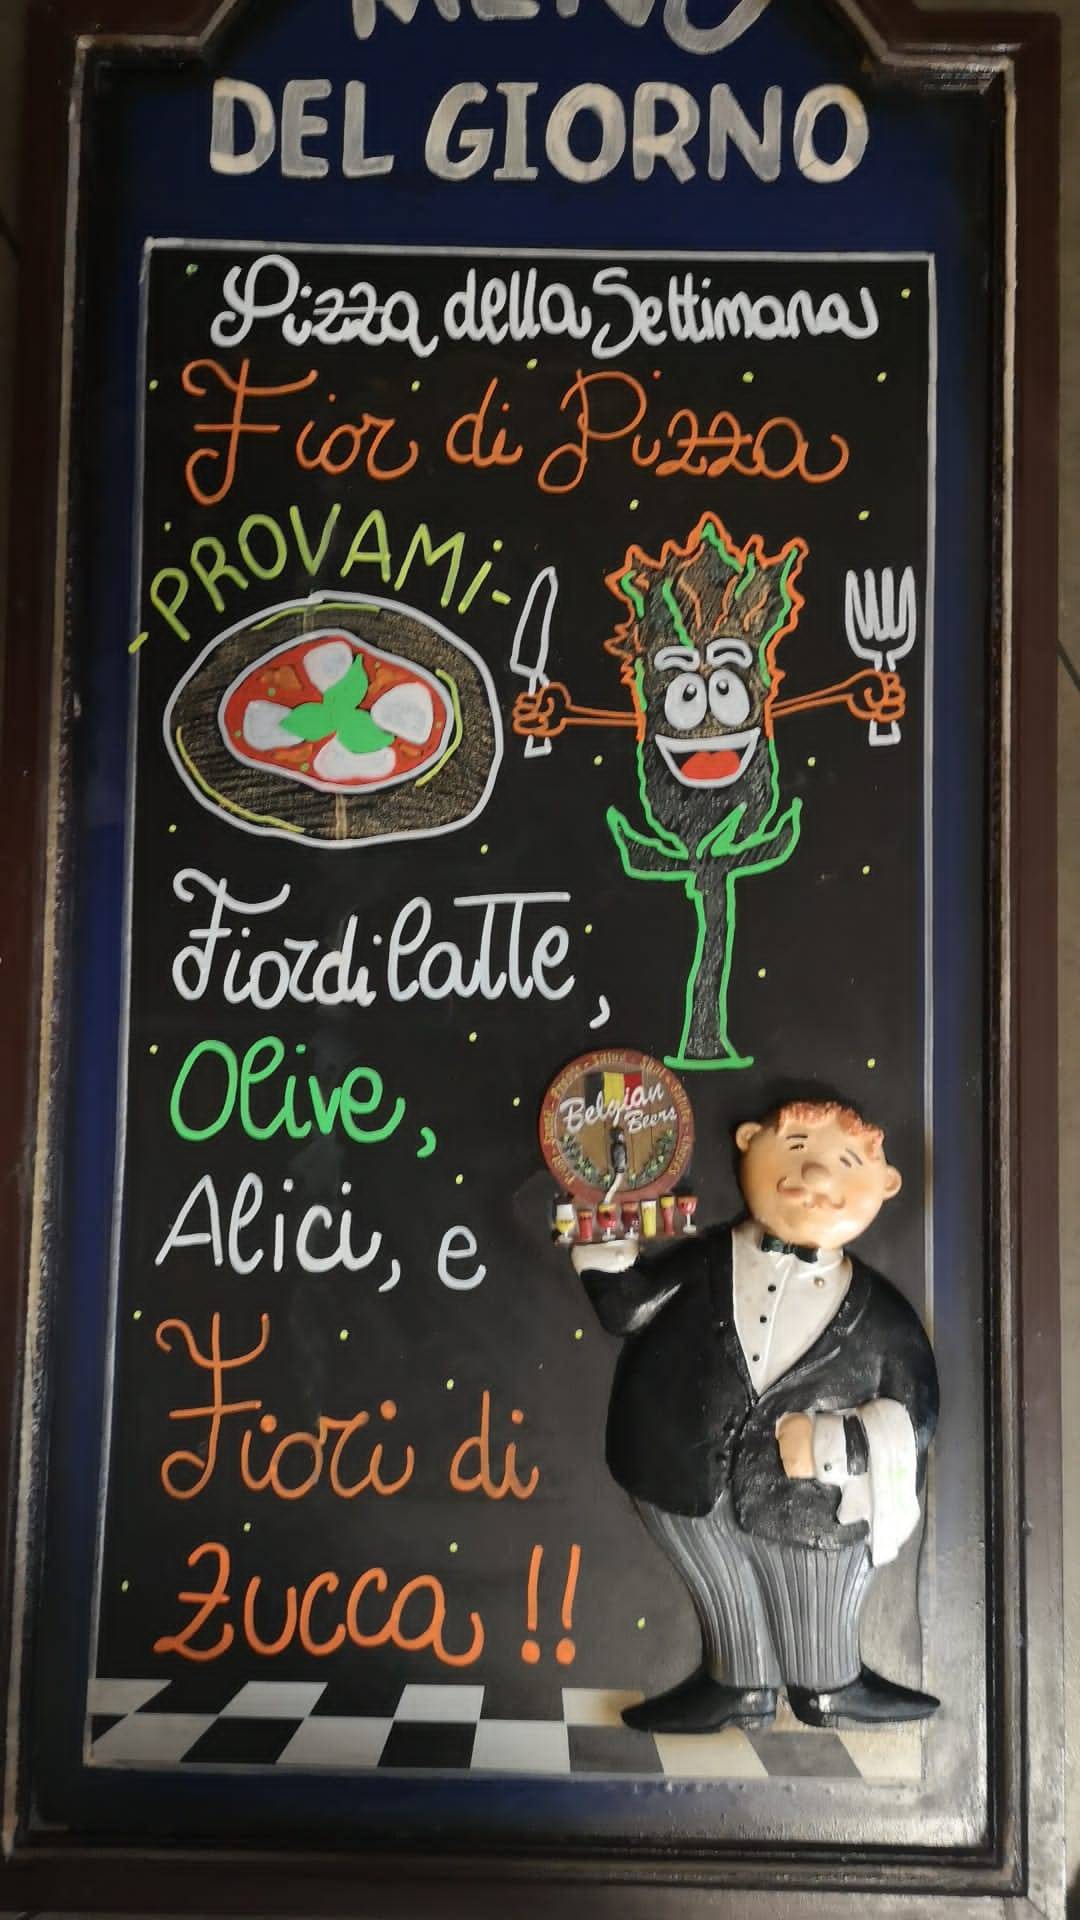 MENÙ
DEL GIORNO
Pizza della Settimana
Fior di Pizza
-PROVAMi-
Fiordilatte,
Olive,
Alici, e
Fiori di
Zucca !!
Belgian
Beers